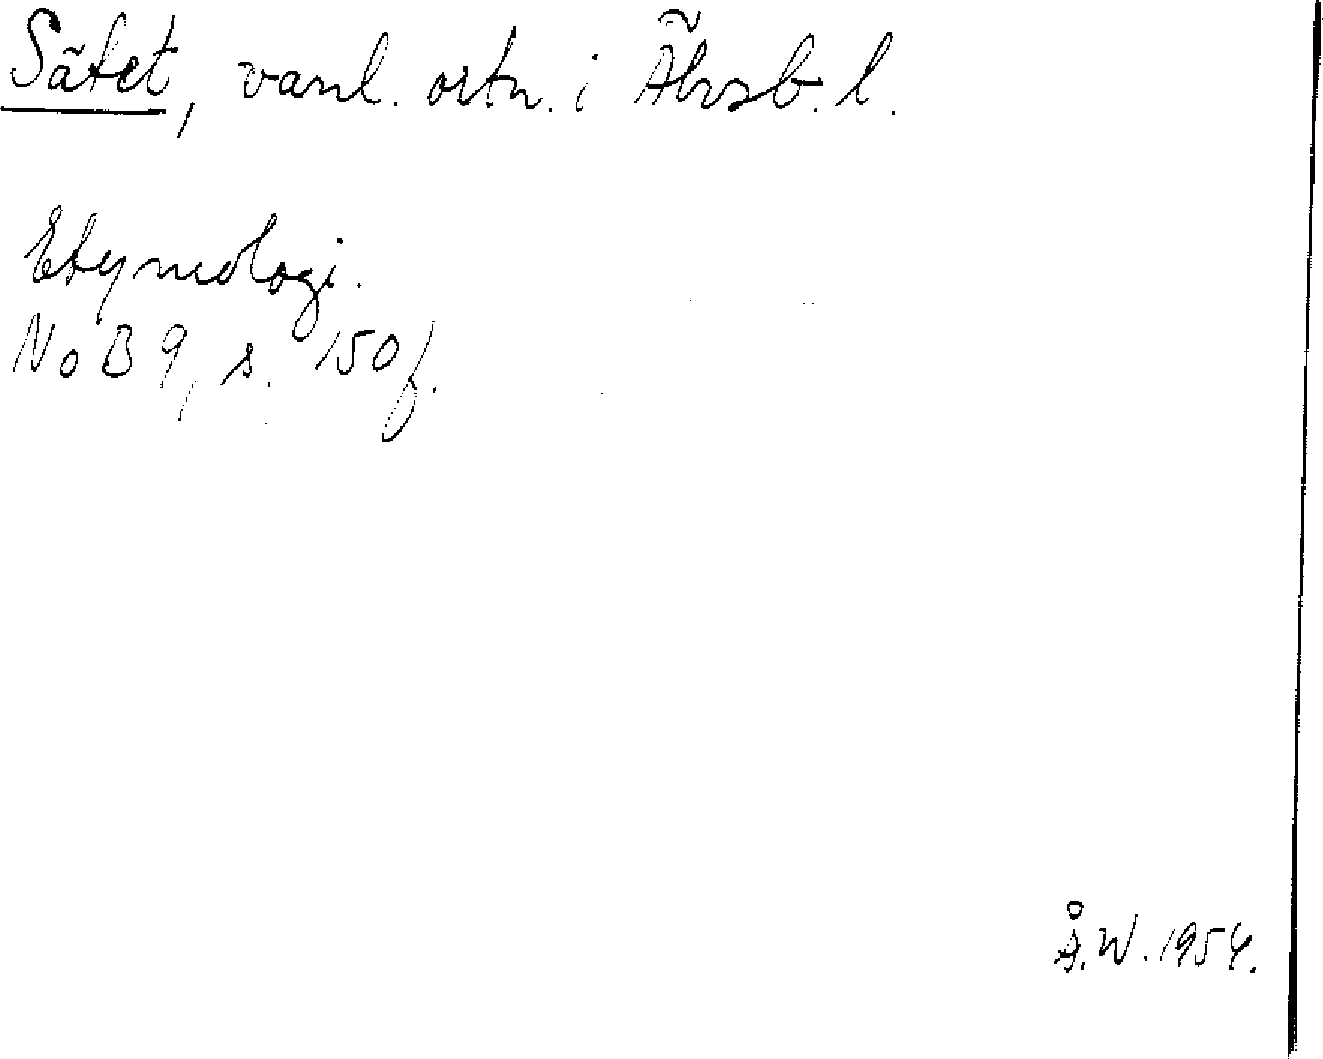 Sätet, vanl. ortn. i Älvsb. l.
Etymologi.
NoB 9, s. 150 f.
Å.W. 1954.